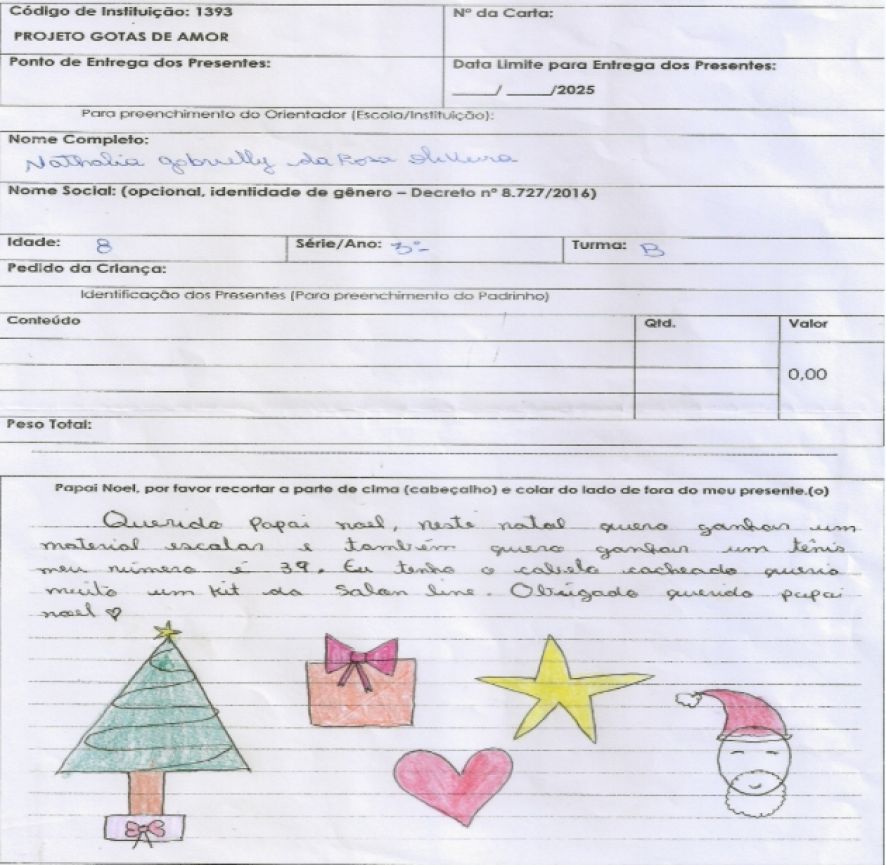 Código de Instituição: 1393
Nº da Carta:
PROJETO GOTAS DE AMOR
Ponto de Entrega dos Presentes:
Data Limite para Entrega dos Presentes:
____/ ____/2025
Para preenchimento do Orientador (Escola/Instituição):
Nome Completo:
Nathalia gabrielly da Rosa Oliveira
Nome Social: (opcional, identidade de gênero – Decreto nº 8.727/2016)
Idade: 8 Série/Ano: 3º Turma: B
Pedido da Criança:
Identificação dos Presentes (Para preenchimento do Padrinho)
Conteúdo Qtd. Valor
0,00
Peso Total:
Papai Noel, por favor recortar a parte de cima (cabeçalho) e colar do lado de fora do meu presente.(o)
Querido Papai noel, neste natal quero ganhar um
material escolar e também quero ganhar um tênis
meu número é 39. Eu tenho o cabelo cacheado queria
muito um kit da Salon line. Obrigado querido papai
noel ♡